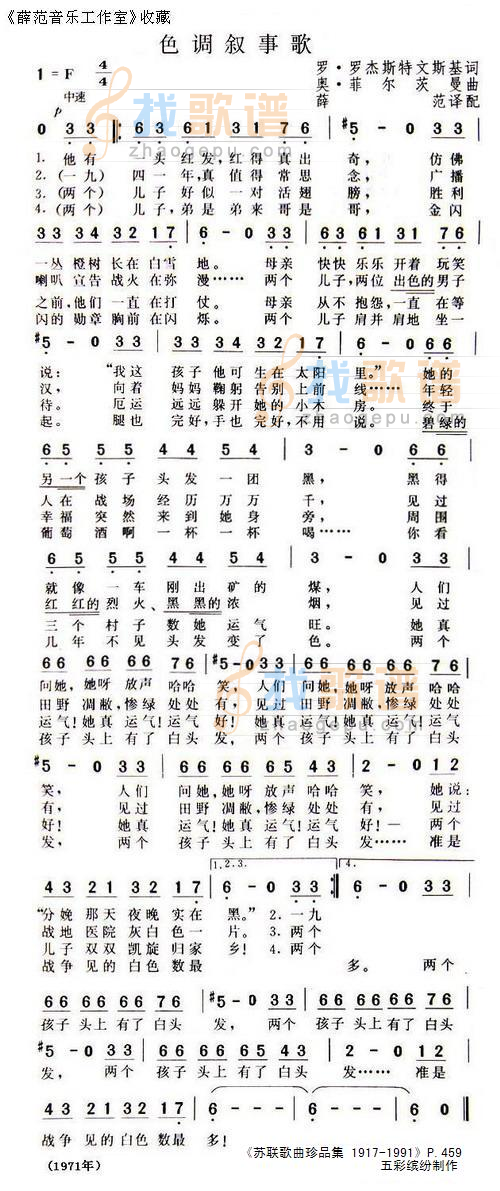 《薛范音乐工作室》收藏
色调叙事歌
1=F 4/4
罗·罗杰斯特文斯基词
中速
奥·菲尔茨曼曲
p
薛范译配
0 3 3 |: 6 3 6 1 3 1 7 6 | #5 - 0 3 3 |
1. 他有 头红发,红得真出 奇, 仿佛
2. (一九) 四一年,真值得常思 念, 广播
3. (两个) 儿子好似一对活翅 膀, 胜利
4. (两个) 儿子,弟是弟来哥是 哥, 金闪
3 3 3 4 3 2 1 7 | 6 - 0 3 3 | 6 3 6 1 3 1 7 6 |
一丛橙树长在白雪 地。 母亲 快快乐乐开着玩笑
喇叭宣告战火在弥 漫…… 两个 儿子,两位出色的男子
之前,他们一直在打 仗。 母亲 从不抱怨,一直在等
闪的勋章胸前在闪 烁。 两个 儿子肩并肩地坐一
#5 - 0 3 3 | 3 3 3 4 3 2 1 7 | 6 - 0 6 6 |
说: “我这 孩子他可生在太阳 里。” 她的
汉, 向着 妈妈鞠躬告别上前 线…… 年轻
待。 厄运 远远躲开她的小木 房。 终于
起。 腿也 完好,手也完好,不用 说。 碧绿的
6 5 5 5 4 4 5 4 | 3 - 0 6 6 |
另一个孩子头发一团 黑, 黑得
人在战场经历万万 千, 见过
幸福突然来到她身 旁, 周围
葡萄酒啊一杯一杯 喝…… 你看
6 5 5 5 4 4 5 4 | 3 - 0 3 3 |
就像一车刚出矿的 煤, 人们
红红的烈火、黑黑的浓 烟, 见过
三个村子数她运气 旺。 她真
几年不见头发变了 色。 两个
6 6 6 6 6 6 7 6 | #5 - 0 3 3 | 6 6 6 6 6 6 7 6 |
问她,她呀放声哈哈 笑, 人们 问她,她呀放声哈哈
田野凋敝,惨绿处处 有, 见过 田野凋敝,惨绿处处
运气!她真运气!运气 好! 她真 运气!她真运气!运气
孩子头上有了白头 发, 两个 孩子头上有了白头
#5 - 0 3 3 | 6 6 6 6 6 5 4 3 | 2 - 0 1 2 |
笑, 人们 问她,她呀放声哈哈 笑, 她说:
有, 见过 田野凋敝,惨绿处处 有, 见过
好! 她真 运气!她真运气!运气 好!— 两个
发, 两个 孩子头上有了白头 发…… 准是
1.2.3. 4.
4 3 2 1 3 2 1 7 | 6 - 0 3 3 :| 6 - 0 3 3 |
“分娩那天夜晚实在 黑。” 2. 一九
战地医院灰白色一 片。 3. 两个
儿子双双凯旋归家 乡! 4. 两个
战争见的白色数最 多。 两个
6 6 6 6 6 6 7 6 | #5 - 0 3 3 | 6 6 6 6 6 6 7 6 |
孩子头上有了白头 发, 两个 孩子头上有了白头
#5 - 0 3 3 | 6 6 6 6 6 5 4 3 | 2 - 0 1 2 |
发, 两个 孩子头上有了白头 发…… 准是
4 3 2 1 3 2 1 7 | 6 - 6 - | 6 - 6 0 ‖
战争见的白色数最 多!
《苏联歌曲珍品集 1917-1991》P.459
(1971年)
五彩缤纷制作
找歌谱
zhaogepu.com
找歌谱
zhaogepu.com
找歌谱
zhaogepu.com